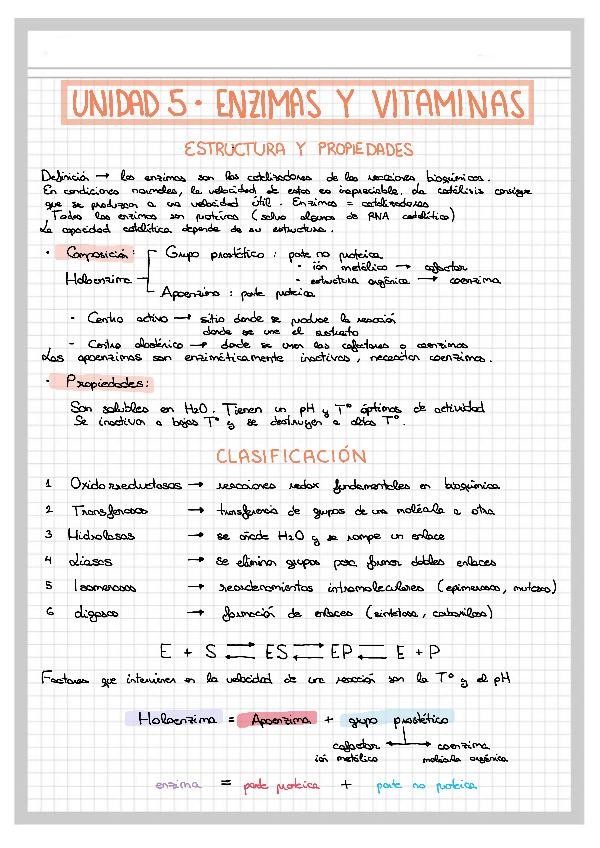 UNIDAD 5 · ENZIMAS Y VITAMINAS
ESTRUCTURA Y PROPIEDADES
Definición → las enzimas son los catalizadores de las reacciones bioquímicas.
En condiciones normales, la velocidad de estas es inapreciable. La catálisis consigue
que se produzcan a una velocidad útil. Enzimas = catalizadores
Todas las enzimas son proteínas (salvo algunas de RNA catalítico)
La capacidad catalítica depende de su estructura.
· Composición: Grupo prostético : parte no proteica
· ión metálico → cofactor
Holoenzima · estructura orgánica → coenzima
Apoenzima : parte proteica
- Centro activo → sitio donde se produce la reacción
donde se une el sustrato
- Centro alostérico → donde se unen los cofactores o coenzimas
Las apoenzimas son enzimáticamente inactivas, necesitan coenzimas.
· Propiedades:
Son solubles en H2O. Tienen un pH y Tº óptimos de actividad
Se inactivan a bajas Tº y se destruyen a altas Tº.
CLASIFICACIÓN
1 Oxidorreductasas → reacciones redox fundamentales en bioquímica
2 Transferasas → transferencia de grupos de una molécula a otra
3 Hidrolasas → se añade H2O y se rompe un enlace
4 Liasas → se eliminan grupos para formar dobles enlaces
5 Isomerasas → reordenamientos intramoleculares (epimerasas, mutasas)
6 Ligasas → formación de enlaces (sintetasa, carboxilasa)
E + S ⇄ ES ⇄ EP ⇄ E + P
Factores que intervienen en la velocidad de una reacción son la Tº y el pH
Holoenzima = Apoenzima + grupo prostético
cofactor ← → coenzima
ión metálico molécula orgánica
enzima = parte proteica + parte no proteica